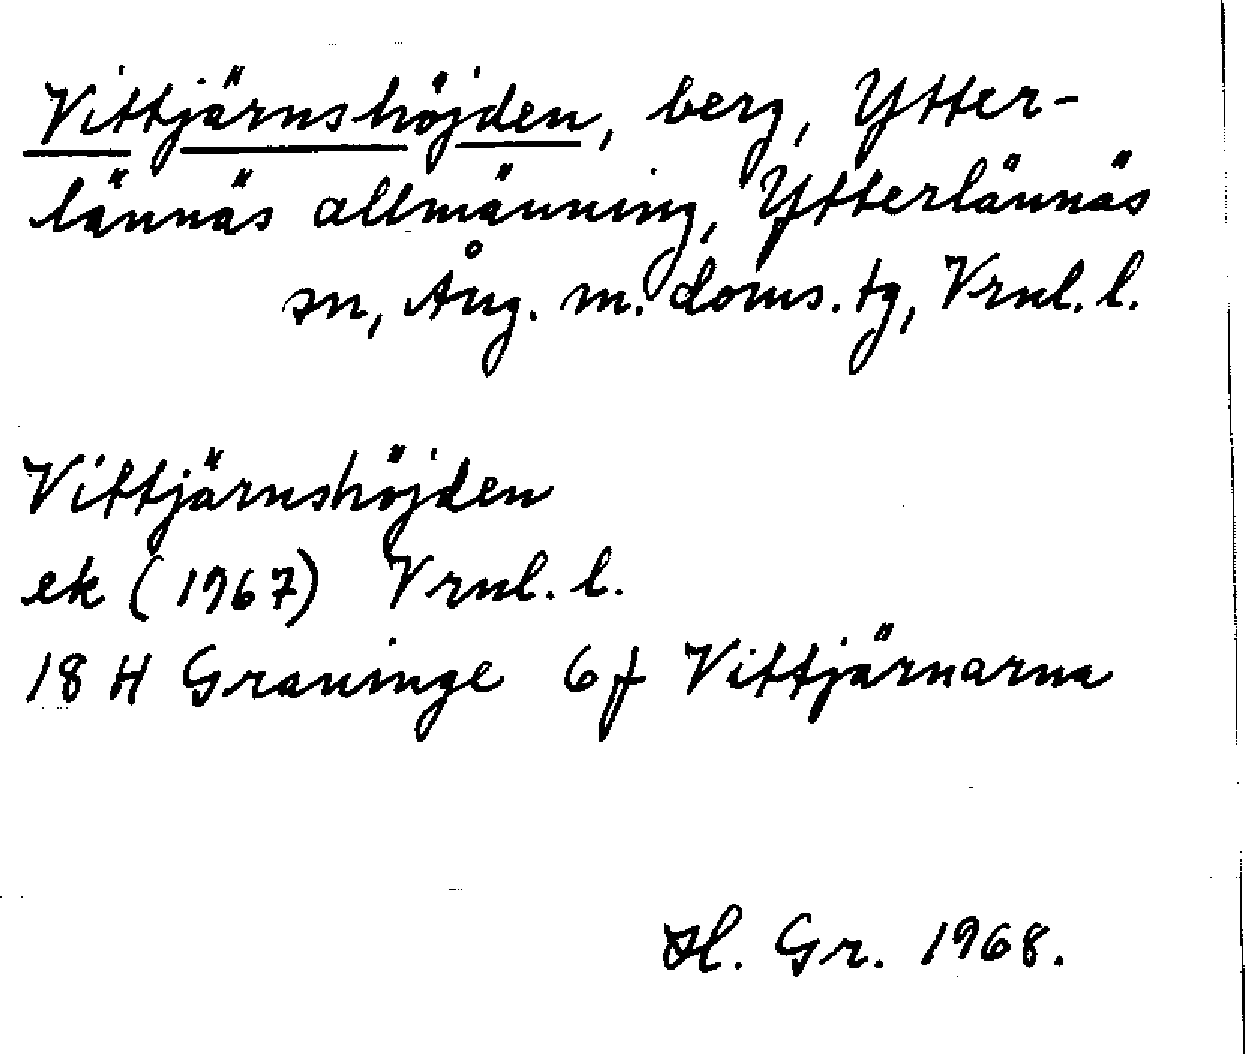 Vittjärnshöjden, berg, Ytter-
lännäs allmänning, Ytterlännäs
sn, Ång. m. doms. tg, Vrnl. l.
Vittjärnshöjden
ek (1967) Vrnl. l.
18 H Graninge 6f Vittjärnarna
Hl. Gr. 1968.